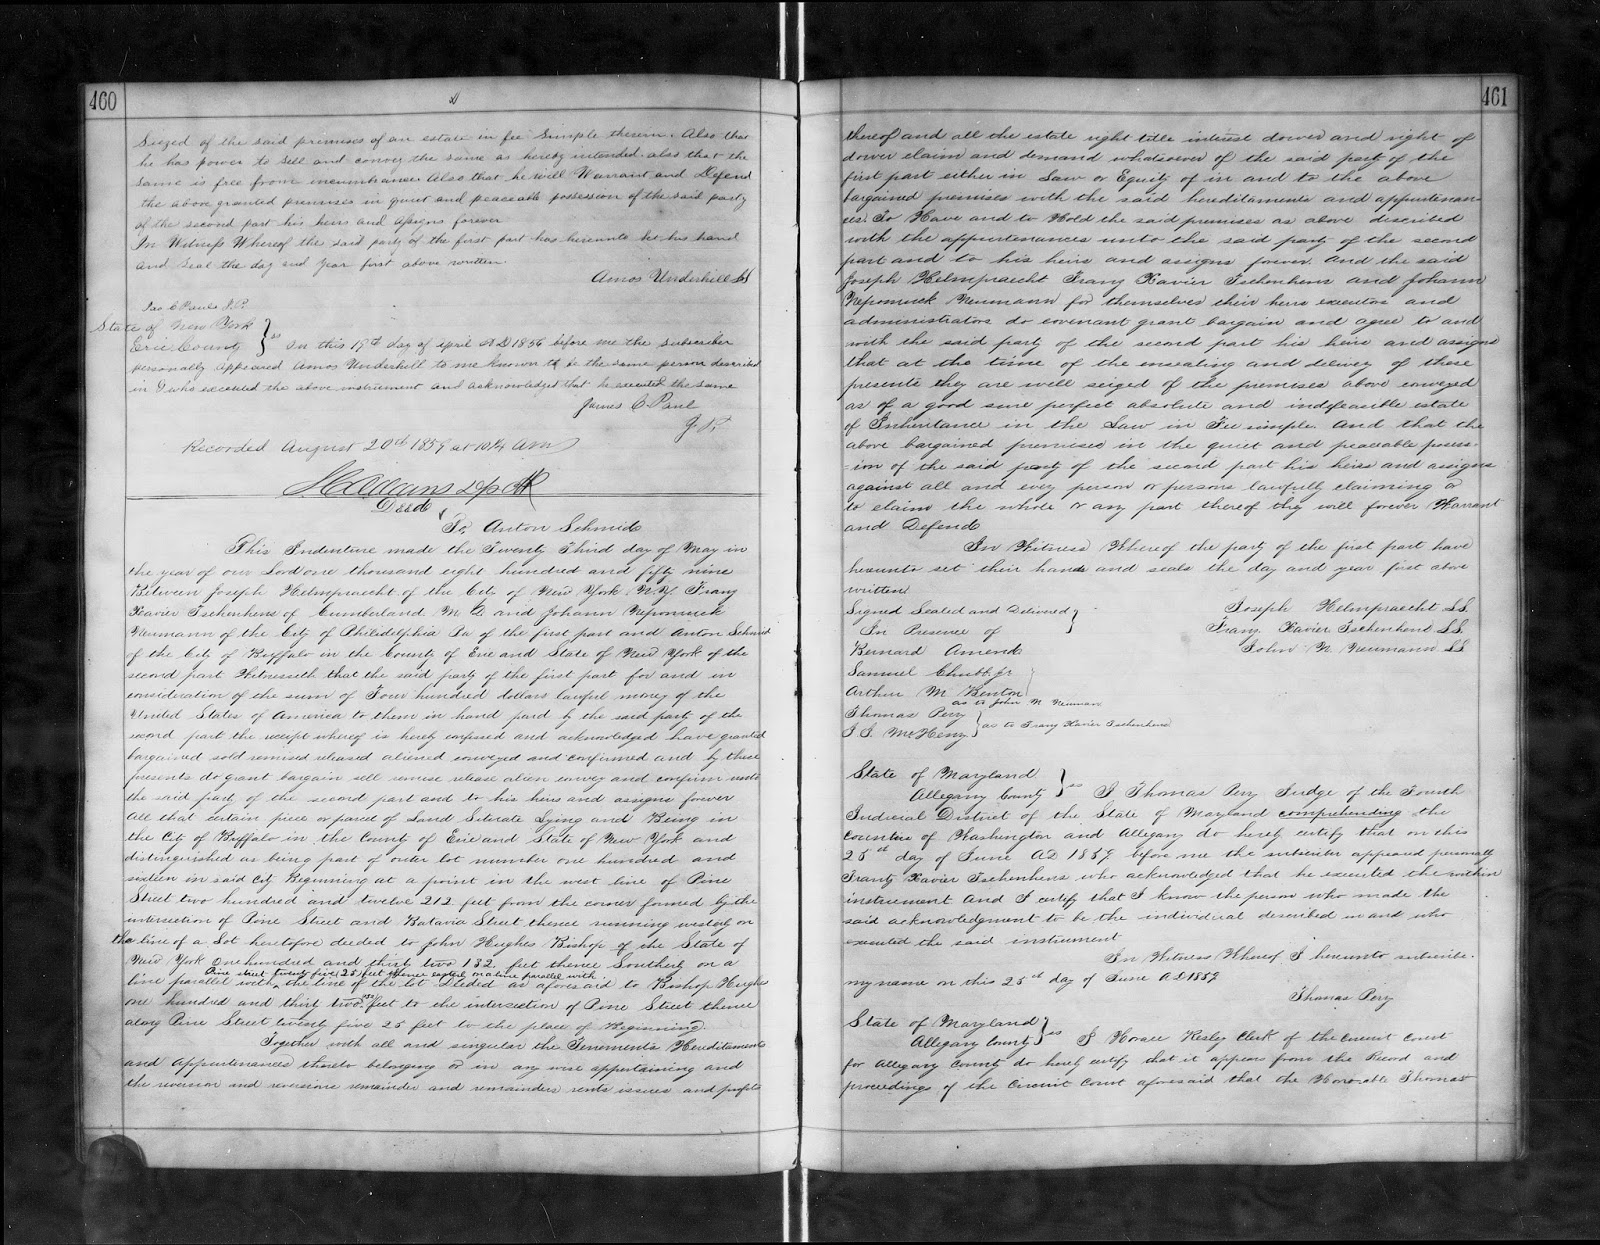 460
Seized of the said premises of an estate in fee Simple therein. Also that
he has power to sell and convey the same as hereby intended. also that the
same is free from incumbrance. Also that he will Warrant and Defend
the above granted premises in quiet and peaceable possession of the said party
of the second part his heirs and assigns forever
In Witness Whereof the said party of the first part has hereunto set his hand
and seal the day and year first above written.
Amos Underhill LS
Jas C Pauls J.P.
State of New York
Erie County } ss On this 19th day of april AD 1856 before me the subscriber
personally appeared Amos Underhill to me known to be the same person described
in & who executed the above instrument and acknowledged that he executed the same
James C. Paul
J.P.
Recorded August 20th 1859 at 10¼ Am
Deed
To Anton Schmid
This Indenture made the Twenty Third day of May in
the year of our Lord one thousand eight hundred and fifty nine
Between Joseph Helmpraecht of the City of New York N.Y. Franz
Xavier Tschenhens of Cumberland M D and Johann Nepomuck
Neumann of the City of Philidelphia Pa of the first part and Anton Schmid
of the City of Buffalo in the County of Erie and State of New York of the
second part Witnesseth that the said party of the first part for and in
consideration of the sum of Four hundred dollars lawful money of the
United States of America to them in hand paid by the said party of the
second part the receipt whereof is hereby confessed and acknowledged have granted
bargained sold remised released aliened conveyed and confirmed and by these
presents do grant bargain sell remise release alien convey and confirm unto
the said party of the second part and to his heirs and assigns forever
All that certain piece or parcel of Land Siterate Lying and Being in
the City of Buffalo in the County of Erie and State of New York and
distinguished as being part of outer lot number one hundred and
sixteen in said City Beginning at a point in the west line of Pine
Street two hundred and twelve 212 feet from the corner formed by the
intersection of Pine Street and Batavia Street thence running westerly on
the line of a Lot heretofore deeded to John Hughes Bishop of the State of
New York One hundred and thirty two 132 feet thence Southerly on a
Pine street twenty five 25 feet thence easterly on a line parallel with
line parallel with the line of the lot Deeded as aforesaid to Bishop Hughes
one hundred and thirty two 132 feet to the intersection of Pine Street thence
along Pine Street twenty five 25 feet to the place of Beginning.
Together with all and singular the Tenements Hereditaments
and Appurtenances thereto belonging or in any wise appertaining and
the reversion and reversions remainder and remainders rents issues and profits
461
thereof and all the estate right title interest dower and right of
dower claim and demand whatsoever of the said party of the
first part either in Law or Equity of in and to the above
bargained premises with the said hereditaments and appurtenan-
ces. To Have and to Hold the said premises as above discribed
with the appurtenances unto the said party of the second
part and to his heirs and assigns forever. And the said
Joseph Helmpraecht Franz Xavier Tschenhens and Johann
Nepomuck Neumann for themselves their heirs executors and
administrators do covenant grant bargain and agree to and
with the said party of the second part his heirs and assigns
that at the time of the ensealing and delivery of these
presents they are well seized of the premises above conveyed
as of a good sure perfect absolute and indefeasible estate
of Inheritance in the Law in Fee simple. And that the
above bargained premises in the quiet and peaceable possess-
-ion of the said party of the second part his heirs and assigns
against all and every person or persons lawfully claiming or
to claim the whole or any part thereof they will forever Warrant
and Defend
In Witness Whereof the party of the first part have
hereunto set their hands and seals the day and year first above
written
Signed Sealed and Delivered }
In Presence of
Joseph Helmpraecht LS.
Franz Xavier Tschenhens LS.
John N. Neumann LS
Bernard Amend
Samuel Chubb. jr
Arthur M Benton
as to John N Neuman
Thomas Pery
J. J. McHenry } as to Franz Xavier Tschenhens
State of Maryland
Allegany County } ss I Thomas Pery Judge of the Fourth
Judicial District of the State of Maryland comprehending the
counties of Washington and Allegany do hereby certify that on this
25th day of June AD 1859 before me the subscriber appeared personally
Frantz Xavier Tschenhens who acknowledged that he executed the within
instrument And I certify that I know the person who made the
said acknowledgment to be the individual described in and who
executed the said instrument
In Witness Whereof I hereunto subscribe.
my name on this 25th day of June AD 1859
Thomas Pery
State of Maryland
Allegany County } ss I Horace Resley Clerk of the Circuit Court
for Allegany County do hereby certify that it appears from the Record and
proceedings of the Circuit Court aforesaid that the Honorable Thomas